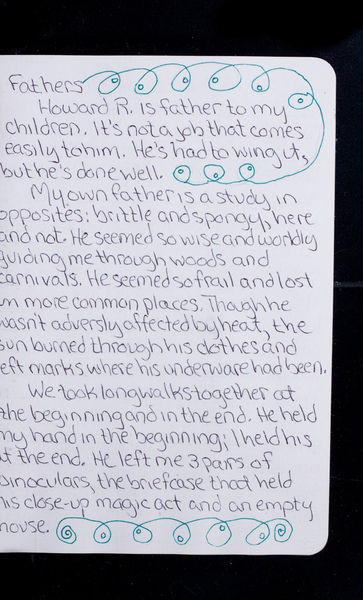 Fathers
Howard R. is father to my
children. It's not a job that comes
easily to him. He's had to wing it,
but he's done well.
My own father is a study in
opposites: brittle and spongy, here
and not. He seemed so wise and worldly
guiding me through woods and
carnivals. He seemed so frail and lost
in more common places. Though he
wasn't adversly affected by heat, the
sun burned through his clothes and
left marks where his underware had been.
We took long walks together at
the beginning and in the end. He held
my hand in the beginning; I held his
at the end. He left me 3 pairs of
binoculars, the briefcase that held
his close-up magic act and an empty
house.